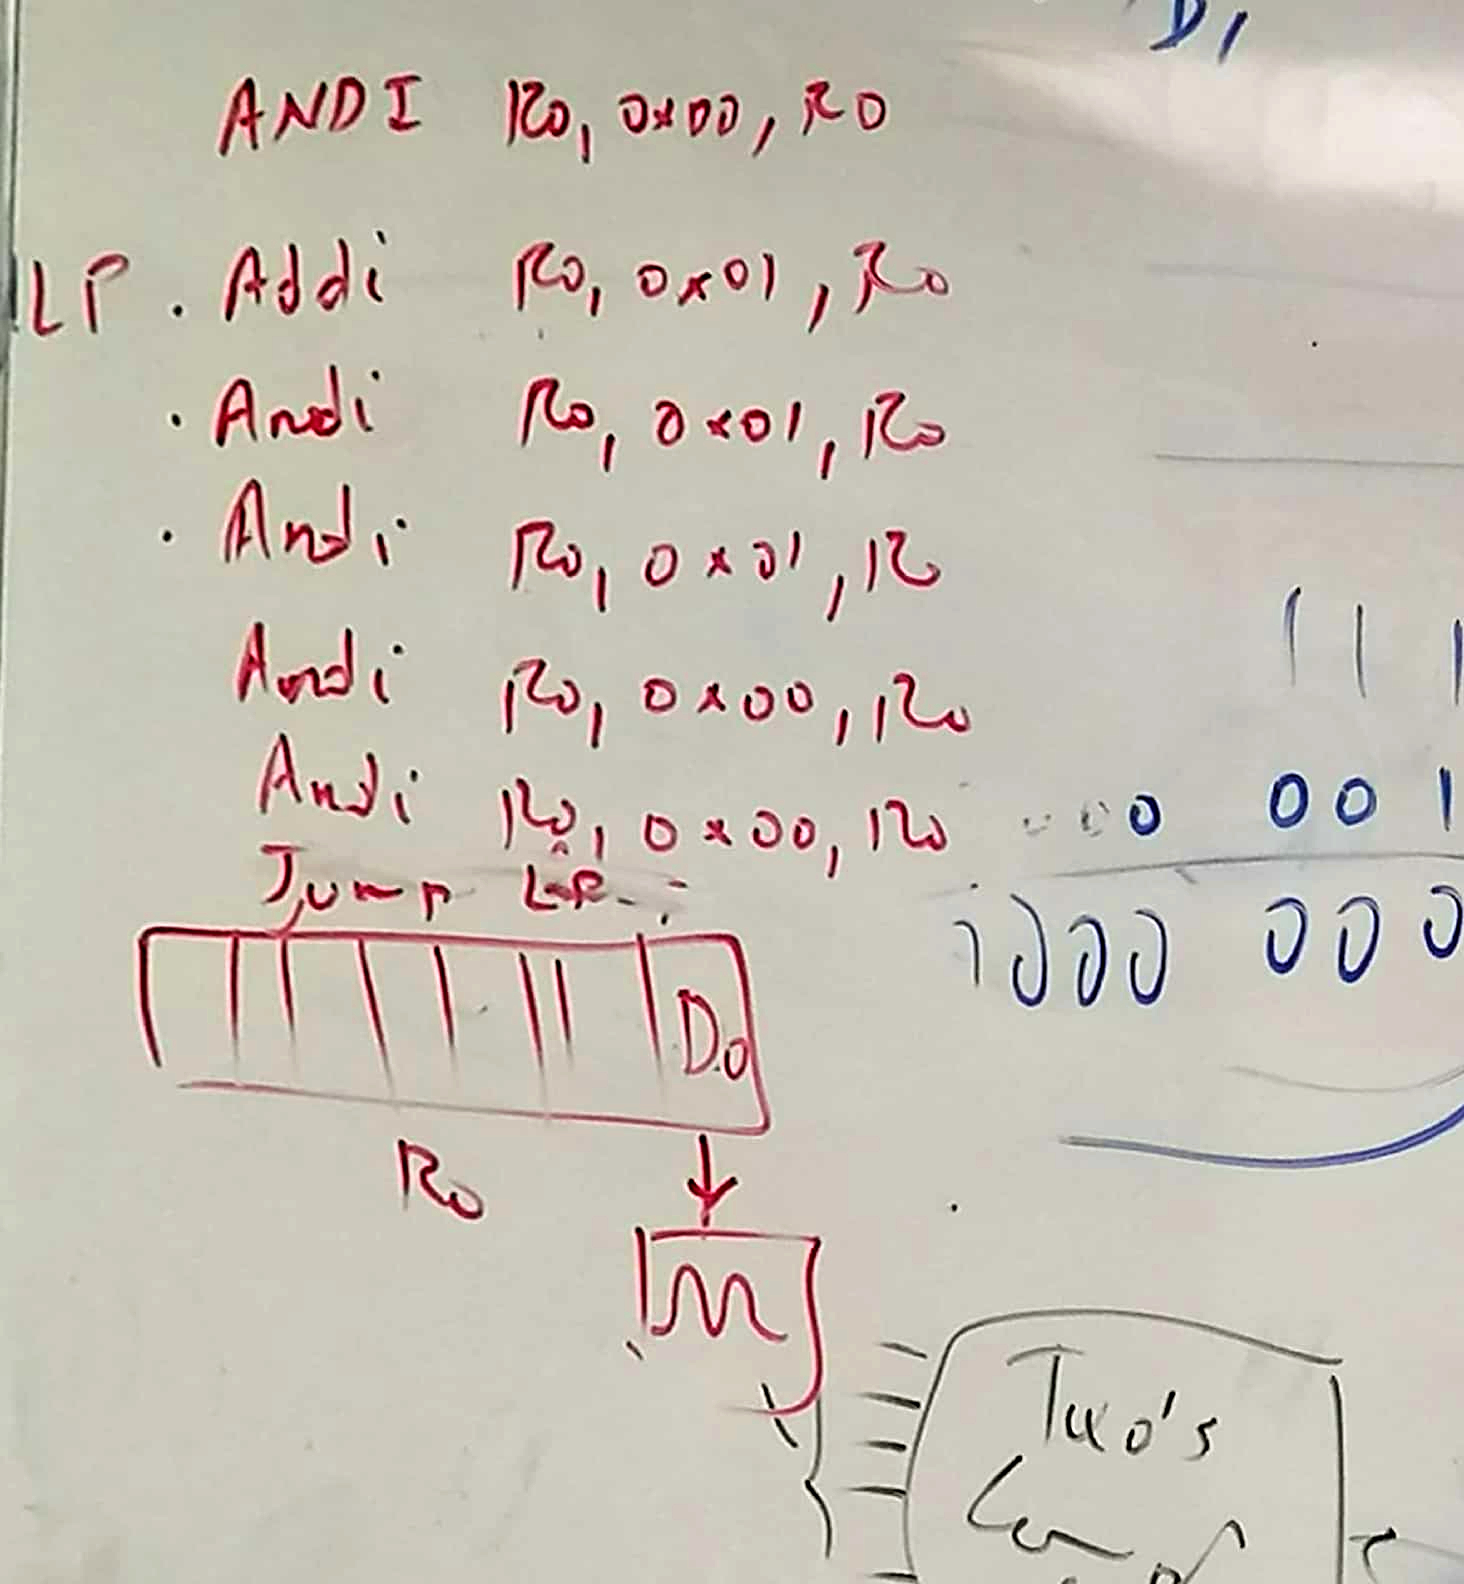 D1
ANDI R0, 0x00, R0
LP . Addi R0, 0x01, R0
. Andi R0, 0x01, R0
. Andi R0, 0x01, R
Andi R0, 0x00, R0
Andi R0, 0x00, R0
Jump LP
1 1 1
0 0 0 1
1000 000
D0
R0
Two's